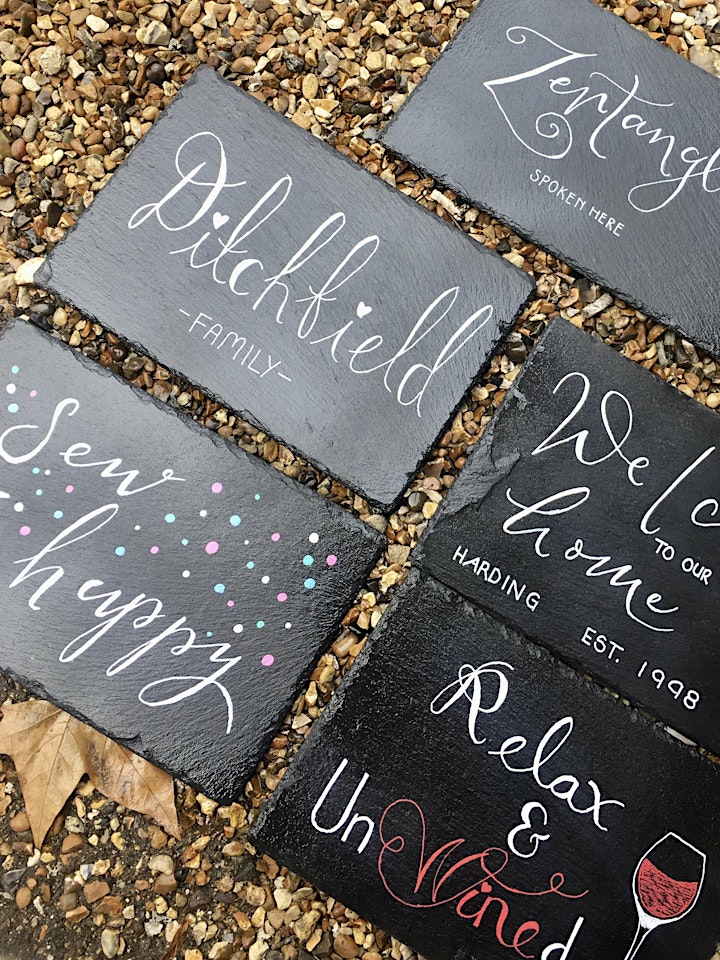 Zentangl
SPOKEN HERE
Ditchfield
-FAMILY-
Sew
happy
Welc
TO OUR
home
HARDING EST. 1998
Relax
&
UnWined